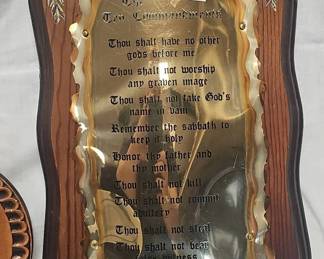 The
Ten Commandments
Thou shalt have no other
gods before me
Thou shalt not worship
any graven image
Thou shalt not take God's
name in vain
Remember the sabbath to
keep it holy
Honor thy father and
thy mother
Thou shalt not kill
Thou shalt not commit
adultery
Thou shalt not steal
Thou shalt not bear
witness